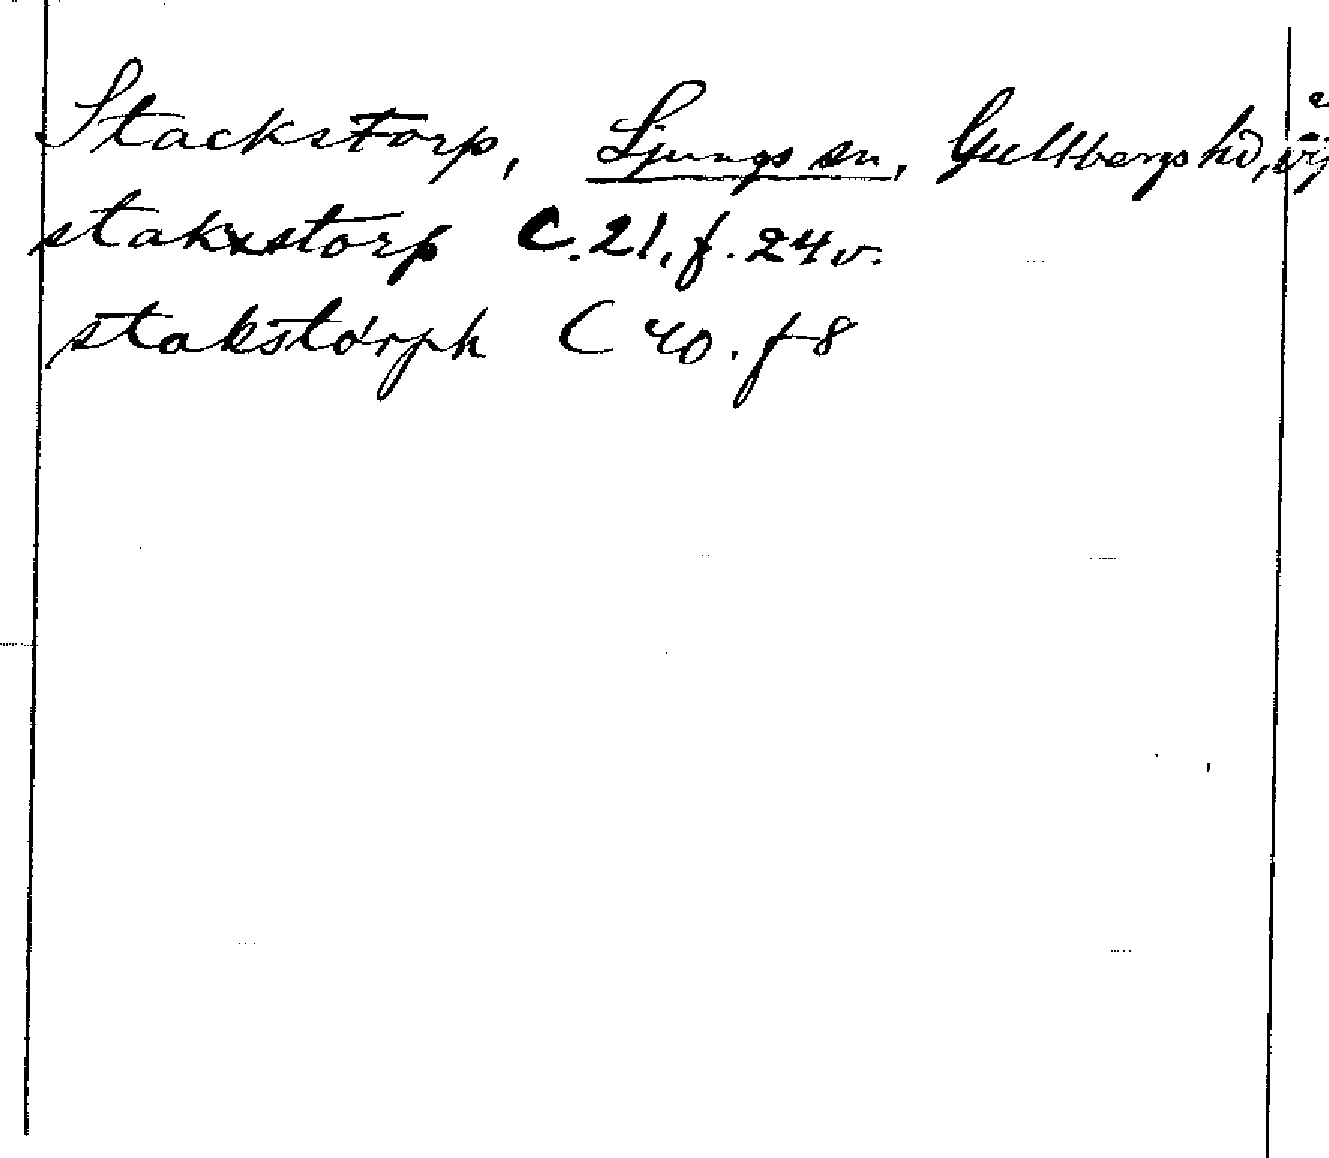 Stackstorp, Ljungs sn, Gullbergs hd,
stakxstorp C. 21. f. 24v.
stakstórph C 40. f 8